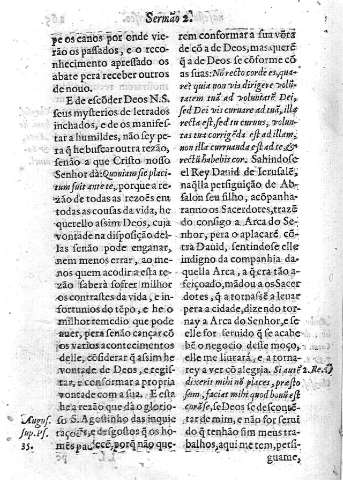 Sermão 2.
pe os canos por onde vie-
rão os passados, e o reco-
nhecimento apressado os
abate pera receber outros
de nouo.
E de escõder Deos N.S.
seus mysterios de letrados
inchados, e de os manifes-
tar a humildes, não sey pe-
ra q̃ he buscar outra rezão,
senão a que Christo nosso
Senhor dà: Quoniam sic placi-
tum fuit ante te, porque a re-
zão de todas as rezoẽs em
todas as cousas da vida, he
querello assim Deos, cuja
vontade na disposição del-
las senão pode enganar,
nem menos errar, ao me-
nos quem acodir a esta re-
zão saberá sofrer milhor
os contrastes da vida, e in-
fortunios do tẽpo, e he o
milhor remedio que pode
auer, pera senão cançar cõ
os varios acontecimentos
delle, cõsiderar q̃ assim he
vontade de Deos, e regis-
trar, e conformar a propria
vontade com a sua. E esta
he a rezão que dà o glorio-
so S. Agostinho das inquie
taçoẽs, e desgostos q̃ os ho-
mẽs padecẽ, porq̃ não que-
Augus.
sup. Ps.
35.
rem conformar a sua võta
de cõ a de Deos, mas querẽ
q̃ a de Deos se cõforme cõ
as suas: Nõ recto corde es, qua-
re? quia non vis dirigere volũ-
tatem tuã ad voluntatẽ Dei,
sed Dei vis curuare ad tuã, illa
recta est, sed tu curuus, volun-
tas tua corrigẽda est ad illam,
non illa curuanda est ad te, &
rectũ habebis cor. Sahindose
el Rey Dauid de Ierusalẽ,
naq̃lla persiguição de Ab-
salon seu filho, acõpanha-
ram no os Sacerdotes, trazẽ
do consigo a Arca do Se-
nhor, pera o aplacarẽ cõ-
tra Dauid, sentindose elle
indigno da companhia da
quella Arca, a q̃ era tão a-
feiçoado, mãdou a os Sacer
dotes, q̃ a tornasẽ a leuar
pera a cidade, dizendo tor-
nay a Arca do Senhor, e se
elle for seruido q̃ se acabe
bẽ o negocio deste moço,
elle me liurará, e a torna-
rey a ver cõ alegria. Si autẽ
dixerit mihi nõ places, præsto
sum, faciat mihi quod bonũ est
corã se, se Deos se descõtẽ-
tar de mim, e não for serui
do q̃ tenhão sim meus tra-
balhos, aqui me tem, persi-
guame,
2. Re.